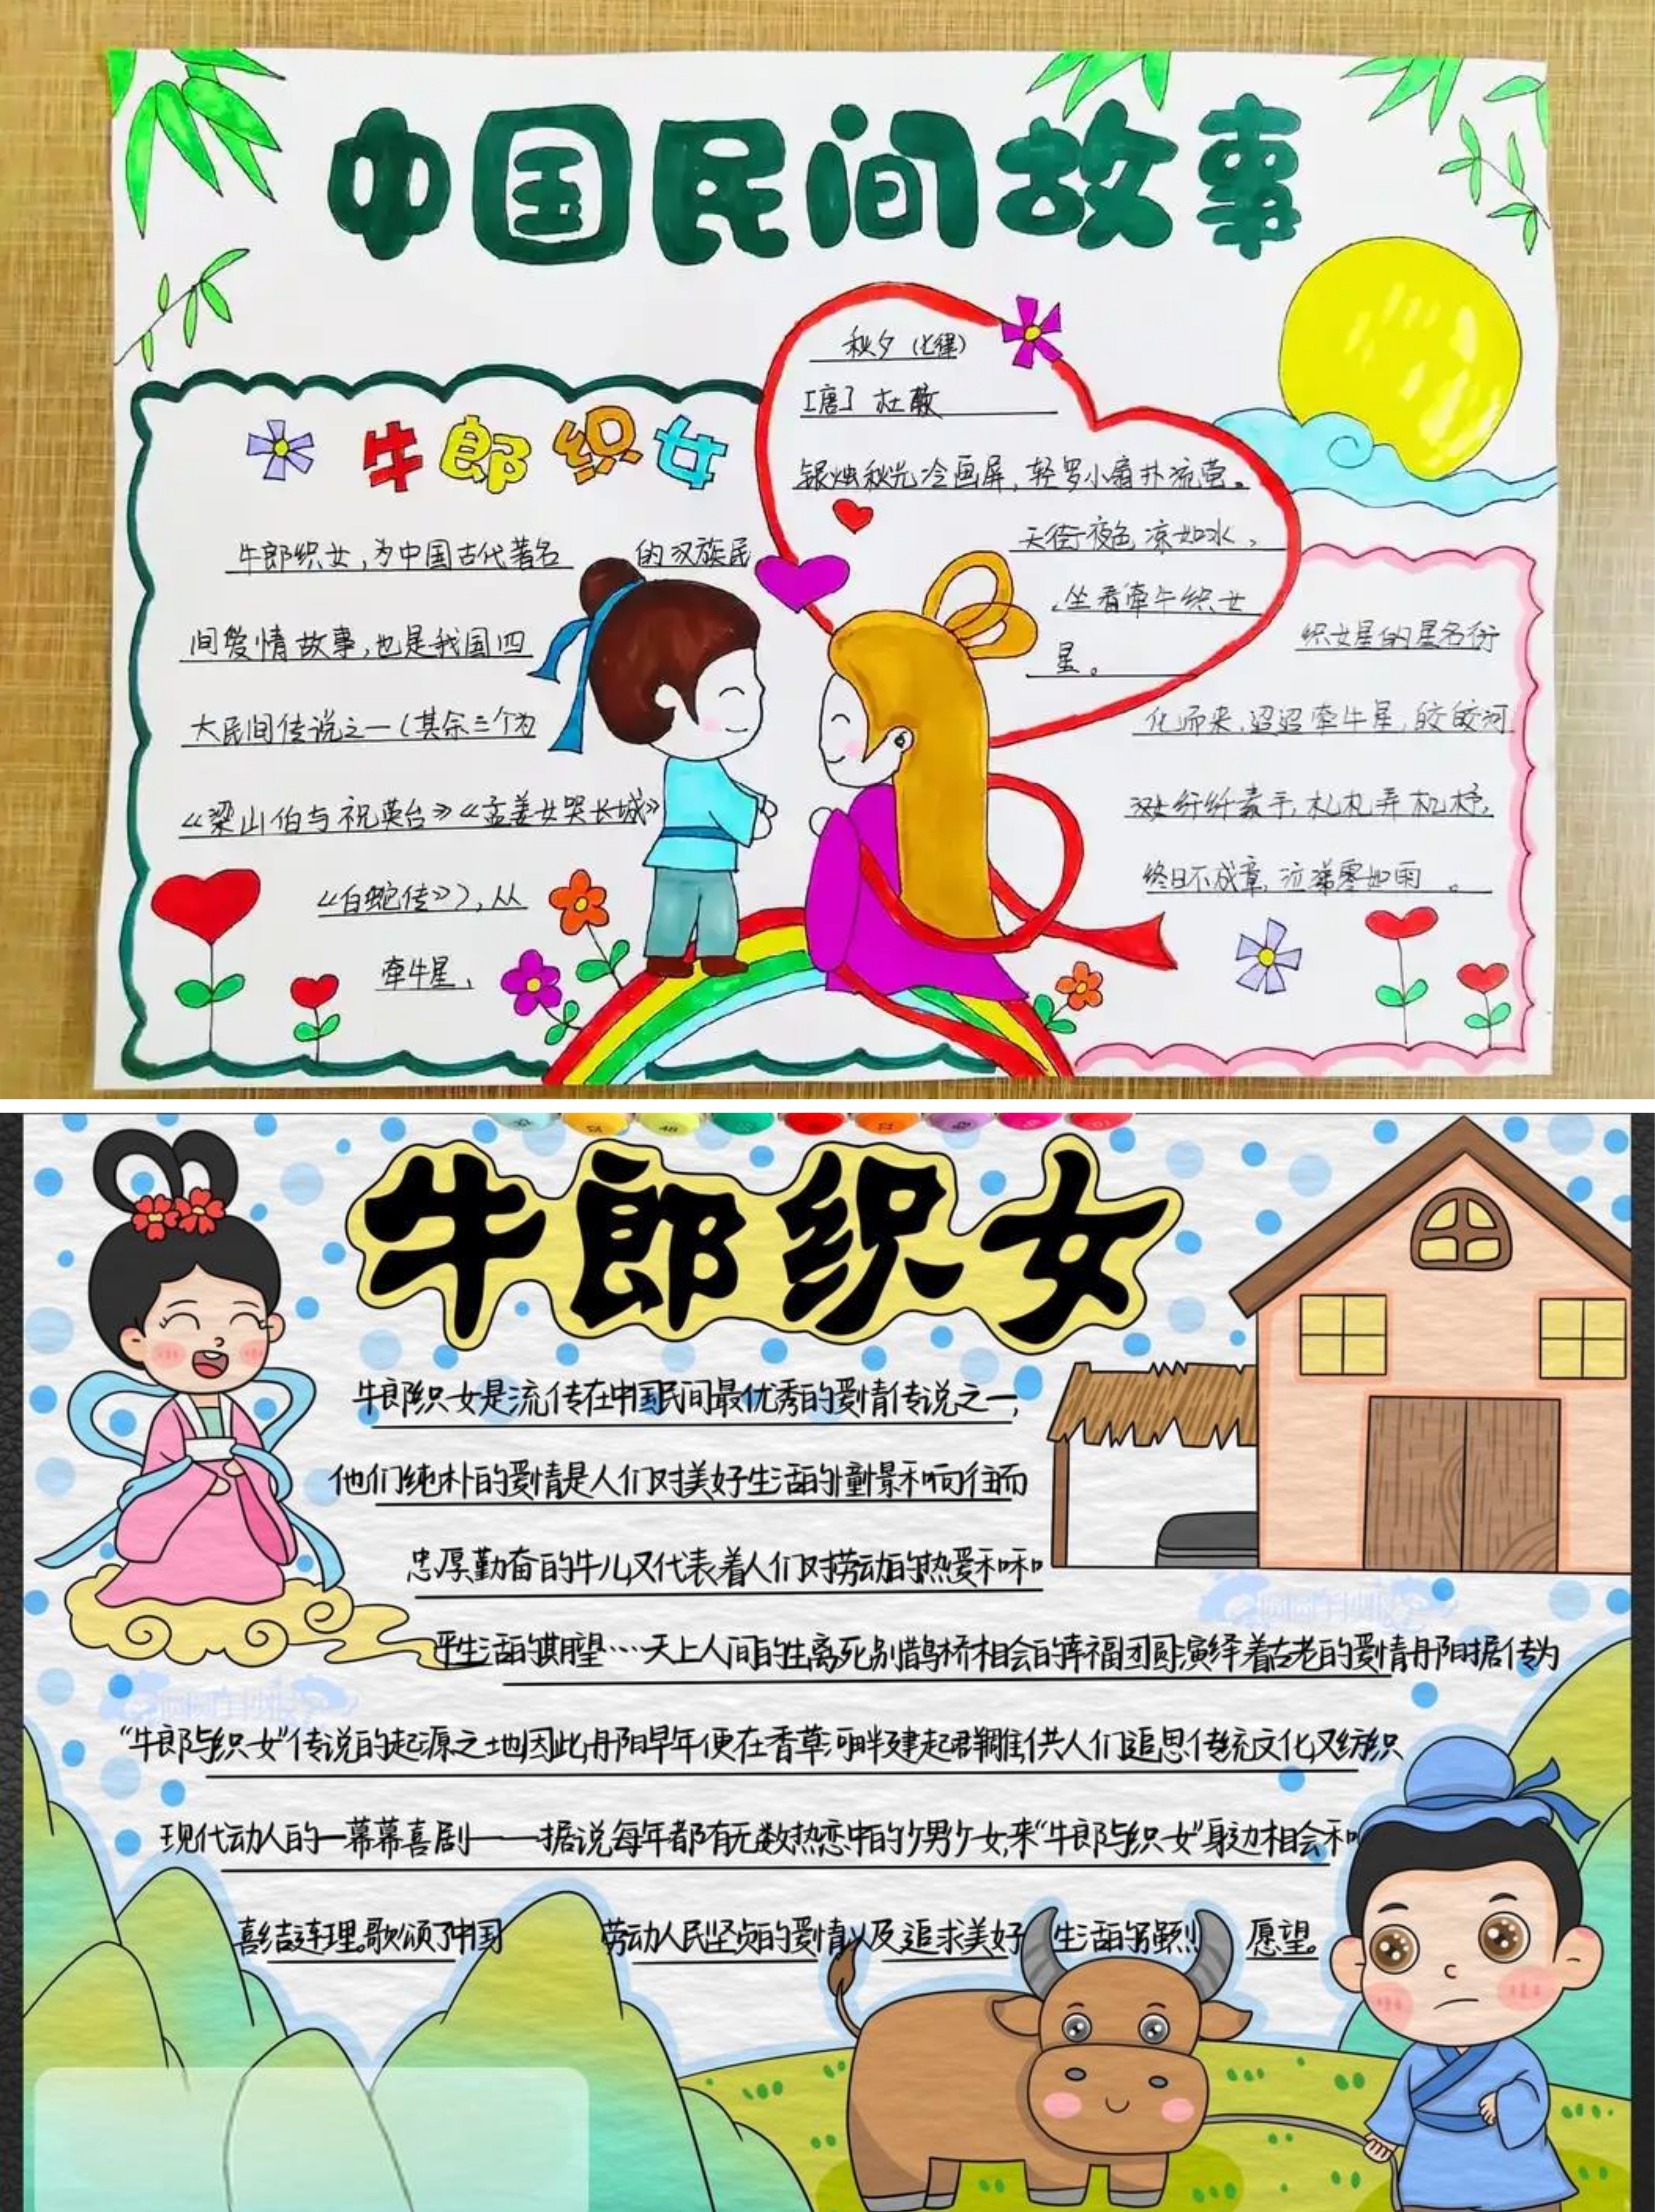 中国民间故事
牛郎织女
牛郎织女，为中国古代著名的汉族民
间爱情故事，也是我国四
大民间传说之一（其余三个为
《梁山伯与祝英台》《孟姜女哭长城》
《白蛇传》），从
牵牛星、
秋夕（七律）
[唐] 杜
银烛秋光冷画屏，轻罗小扇扑流萤。
天街夜色凉如水，
坐看牵牛织女
星。
织女星的星名衍
化而来，迢迢牵牛星，皎皎河
汉女纤纤素手，札札弄机杼，
终日不成章，泣涕零如雨。
牛郎织女
牛郎织女是流传在中国民间最优秀的爱情传说之一，
他们纯朴的爱情是人们对美好生活的憧憬和向往而
忠厚勤奋的牛儿又代表着人们对劳动的热爱和和
平生活的期望……天上人间的生离死别鹊桥相会的幸福团圆演绎着古老的爱情丹阳据传为
“牛郎与织女”传说的起源之地因此丹阳早年便在香草河畔建起群雕供人们追思传统文化又纺织
现代动人的一幕幕喜剧——据说每年都有无数热恋中的少男少女来“牛郎与织女”身边相会和
喜结连理。歌颂了中国劳动人民坚贞的爱情以及追求美好生活的 愿望。